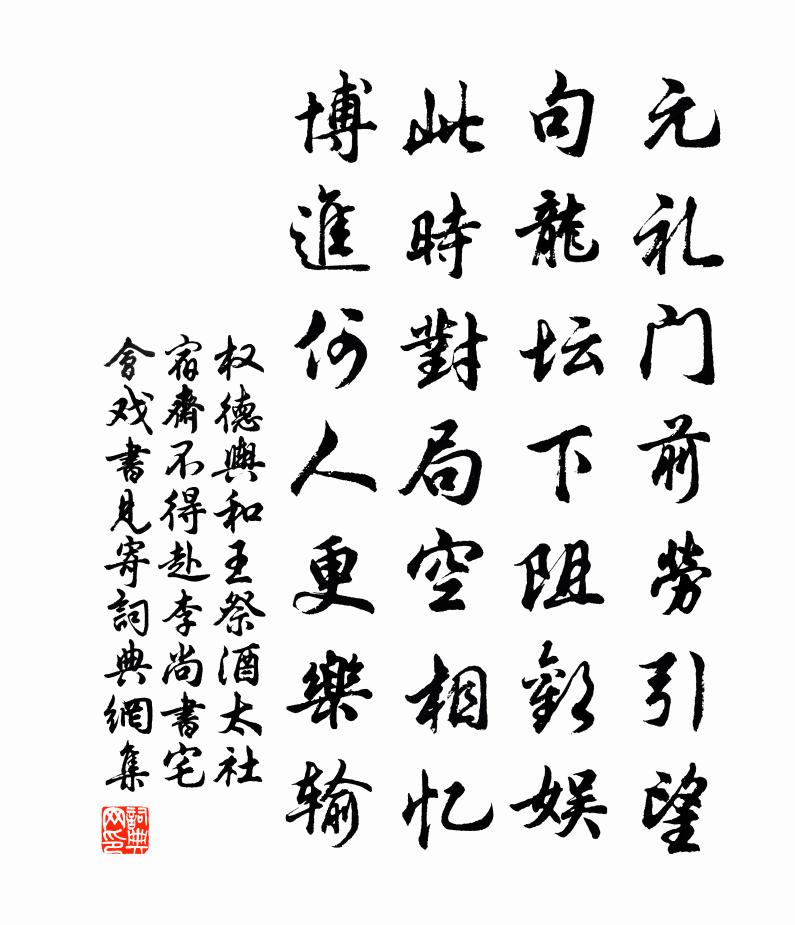 元礼门前劳引望
句龍坛下阻歡娱
此時對局空相忆
博進何人更樂输
权德輿和王祭酒太社
宿齋不得赴李尚書宅
會戏書見寄詞典網集
詞典网印